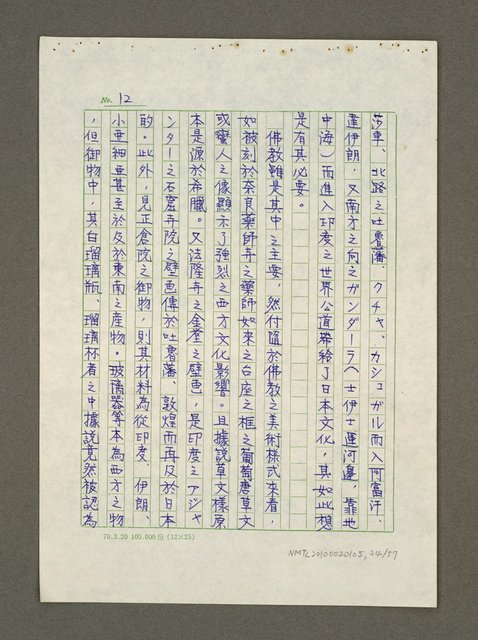 No. 12
莎車、北路之吐魯蕃、クチャ、カシュガル而入阿富汗、
達伊朗，又南方之向之ガンダーラヘ士伊士運河邊，靠地
中海）而進入印度之世界公道帶給了日本文化，其如此想
是有其必要。
佛教雖是其中之主要，然付隨於佛教之美術樣式來看，
如被刻於奈良藥師寺之藥師如來之台座之框之葡萄唐草文
或蠻人之像顯示了強烈之西方文化影響。且據說草文樣原
本是源於希臘。又法隆寺之金堂之壁色，是印度之アジャ
ンター之石窟寺院之壁画傳於吐魯蕃、敦煌而再及於日本
的。此外，見正倉院之御物，則其材料為從印度、伊朗、
小亜細亜甚至於及於東南之產物。玻璃器等本為西方之物
，但御物中，其白瑠璃瓶、瑠璃杯者之中據說竟然被認為
70.3.20.100.000份(12×25)
NMTL20100020105, 24/57